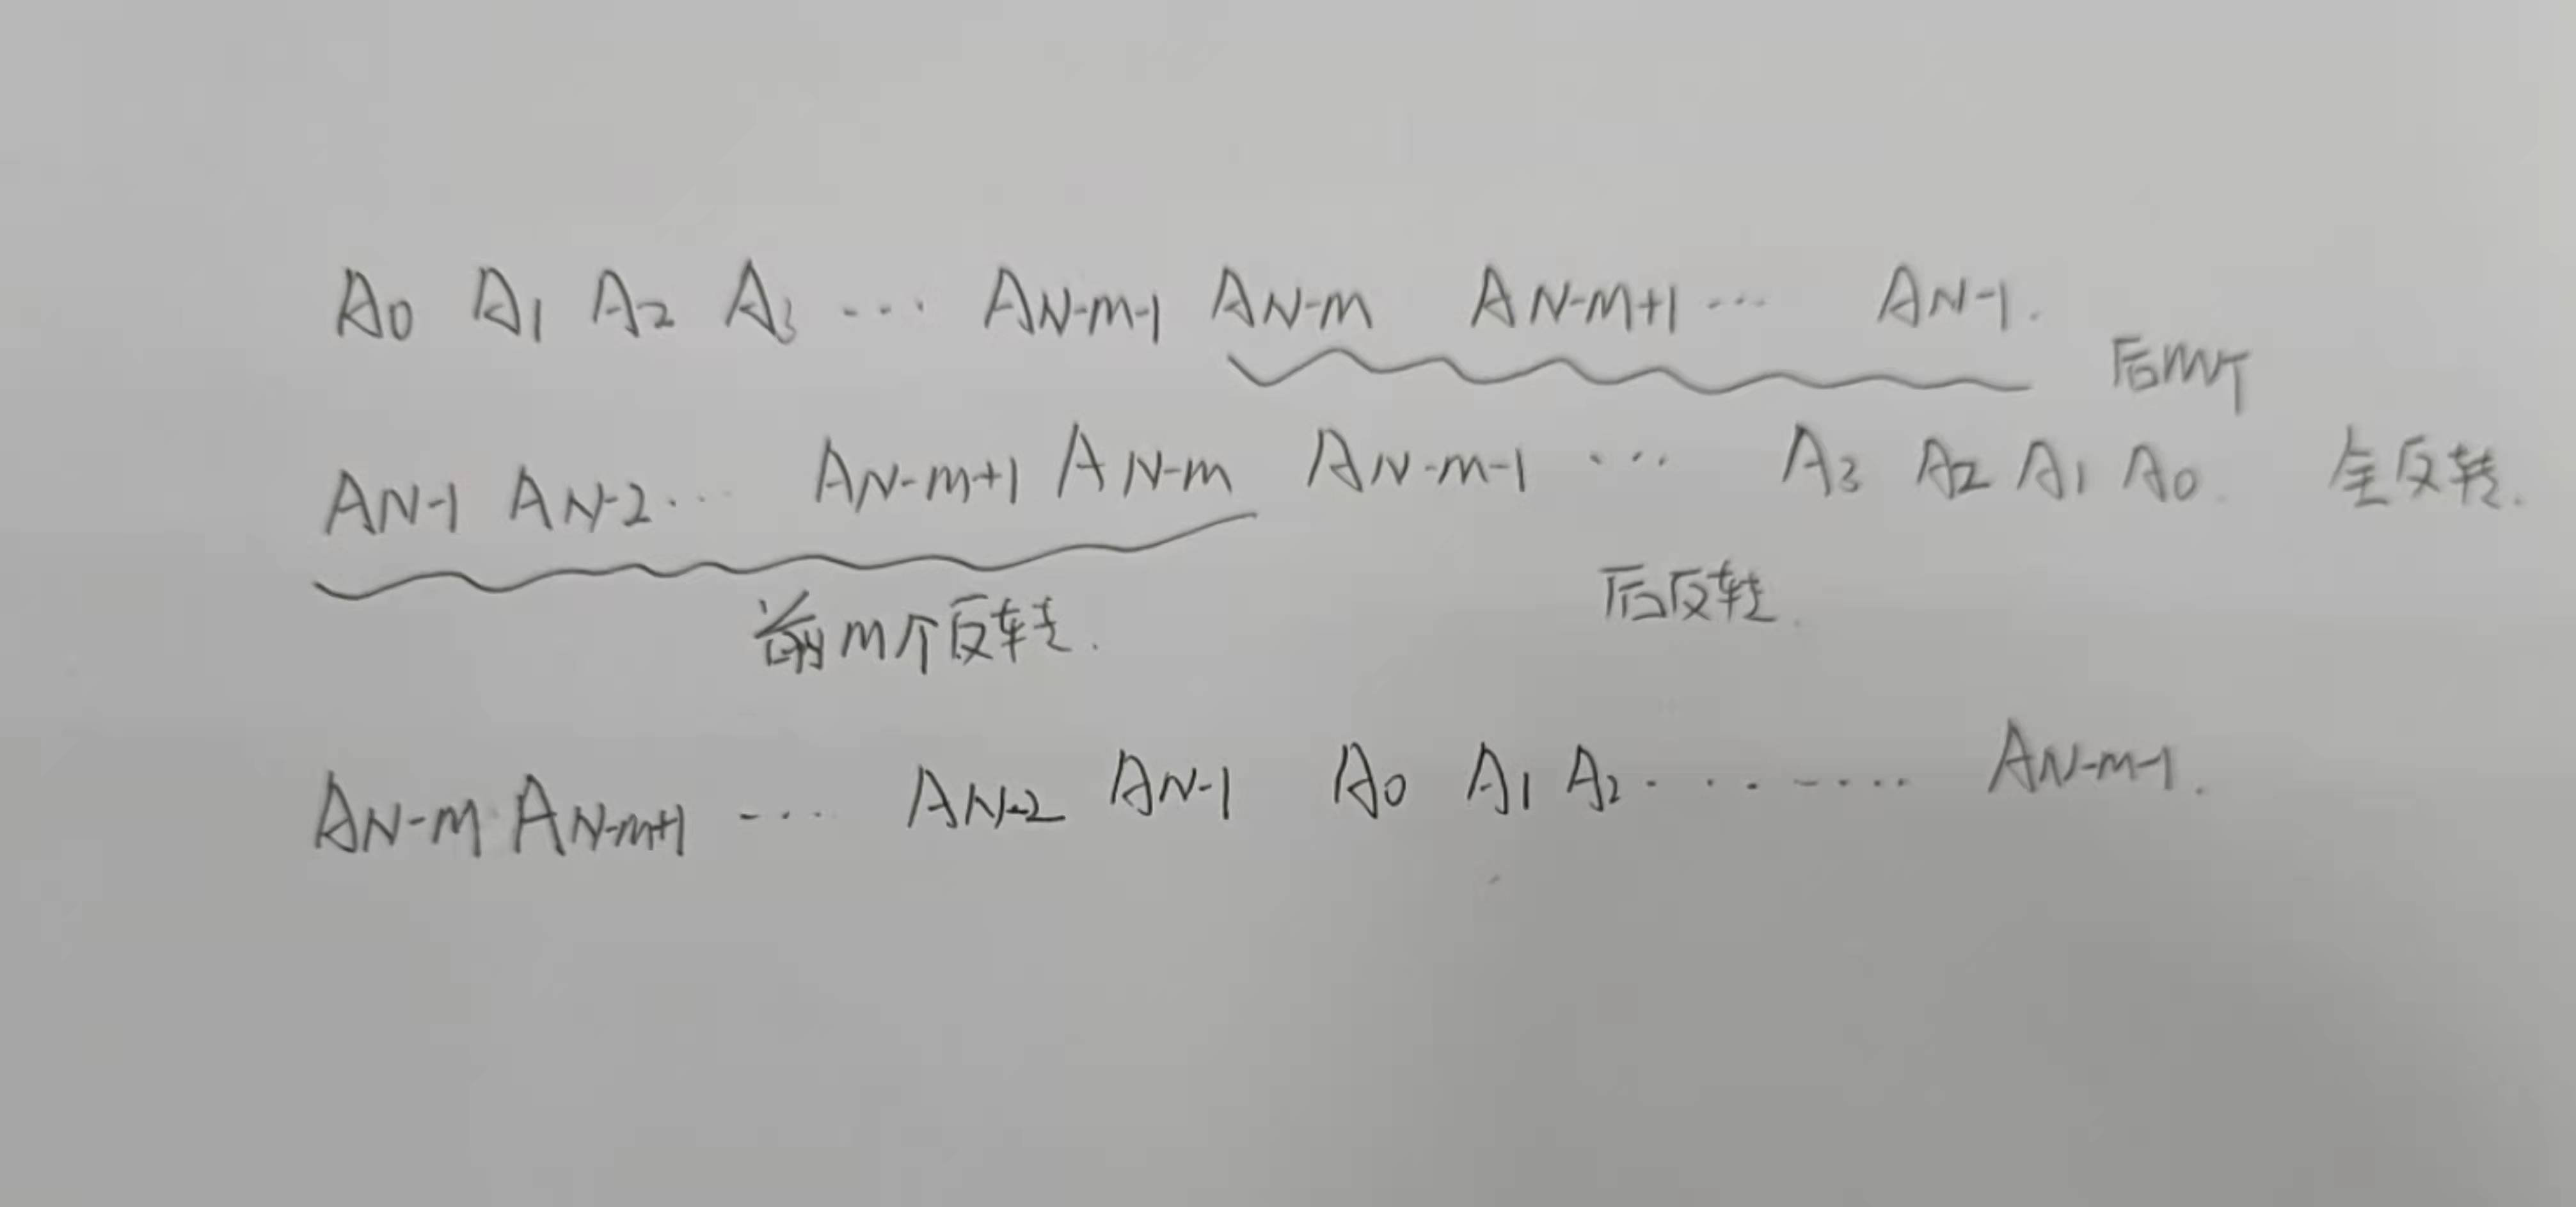 A0 A1 A2 A3 ... AN-m-1 AN-m AN-m+1 ... AN-1.
后m个
AN-1 AN-2... AN-m+1 AN-m AN-m-1 ... A3 A2 A1 A0 全反转.
前m个反转. 后反转.
AN-m AN-m+1 .... AN-2 AN-1 A0 A1 A2......... AN-m-1.